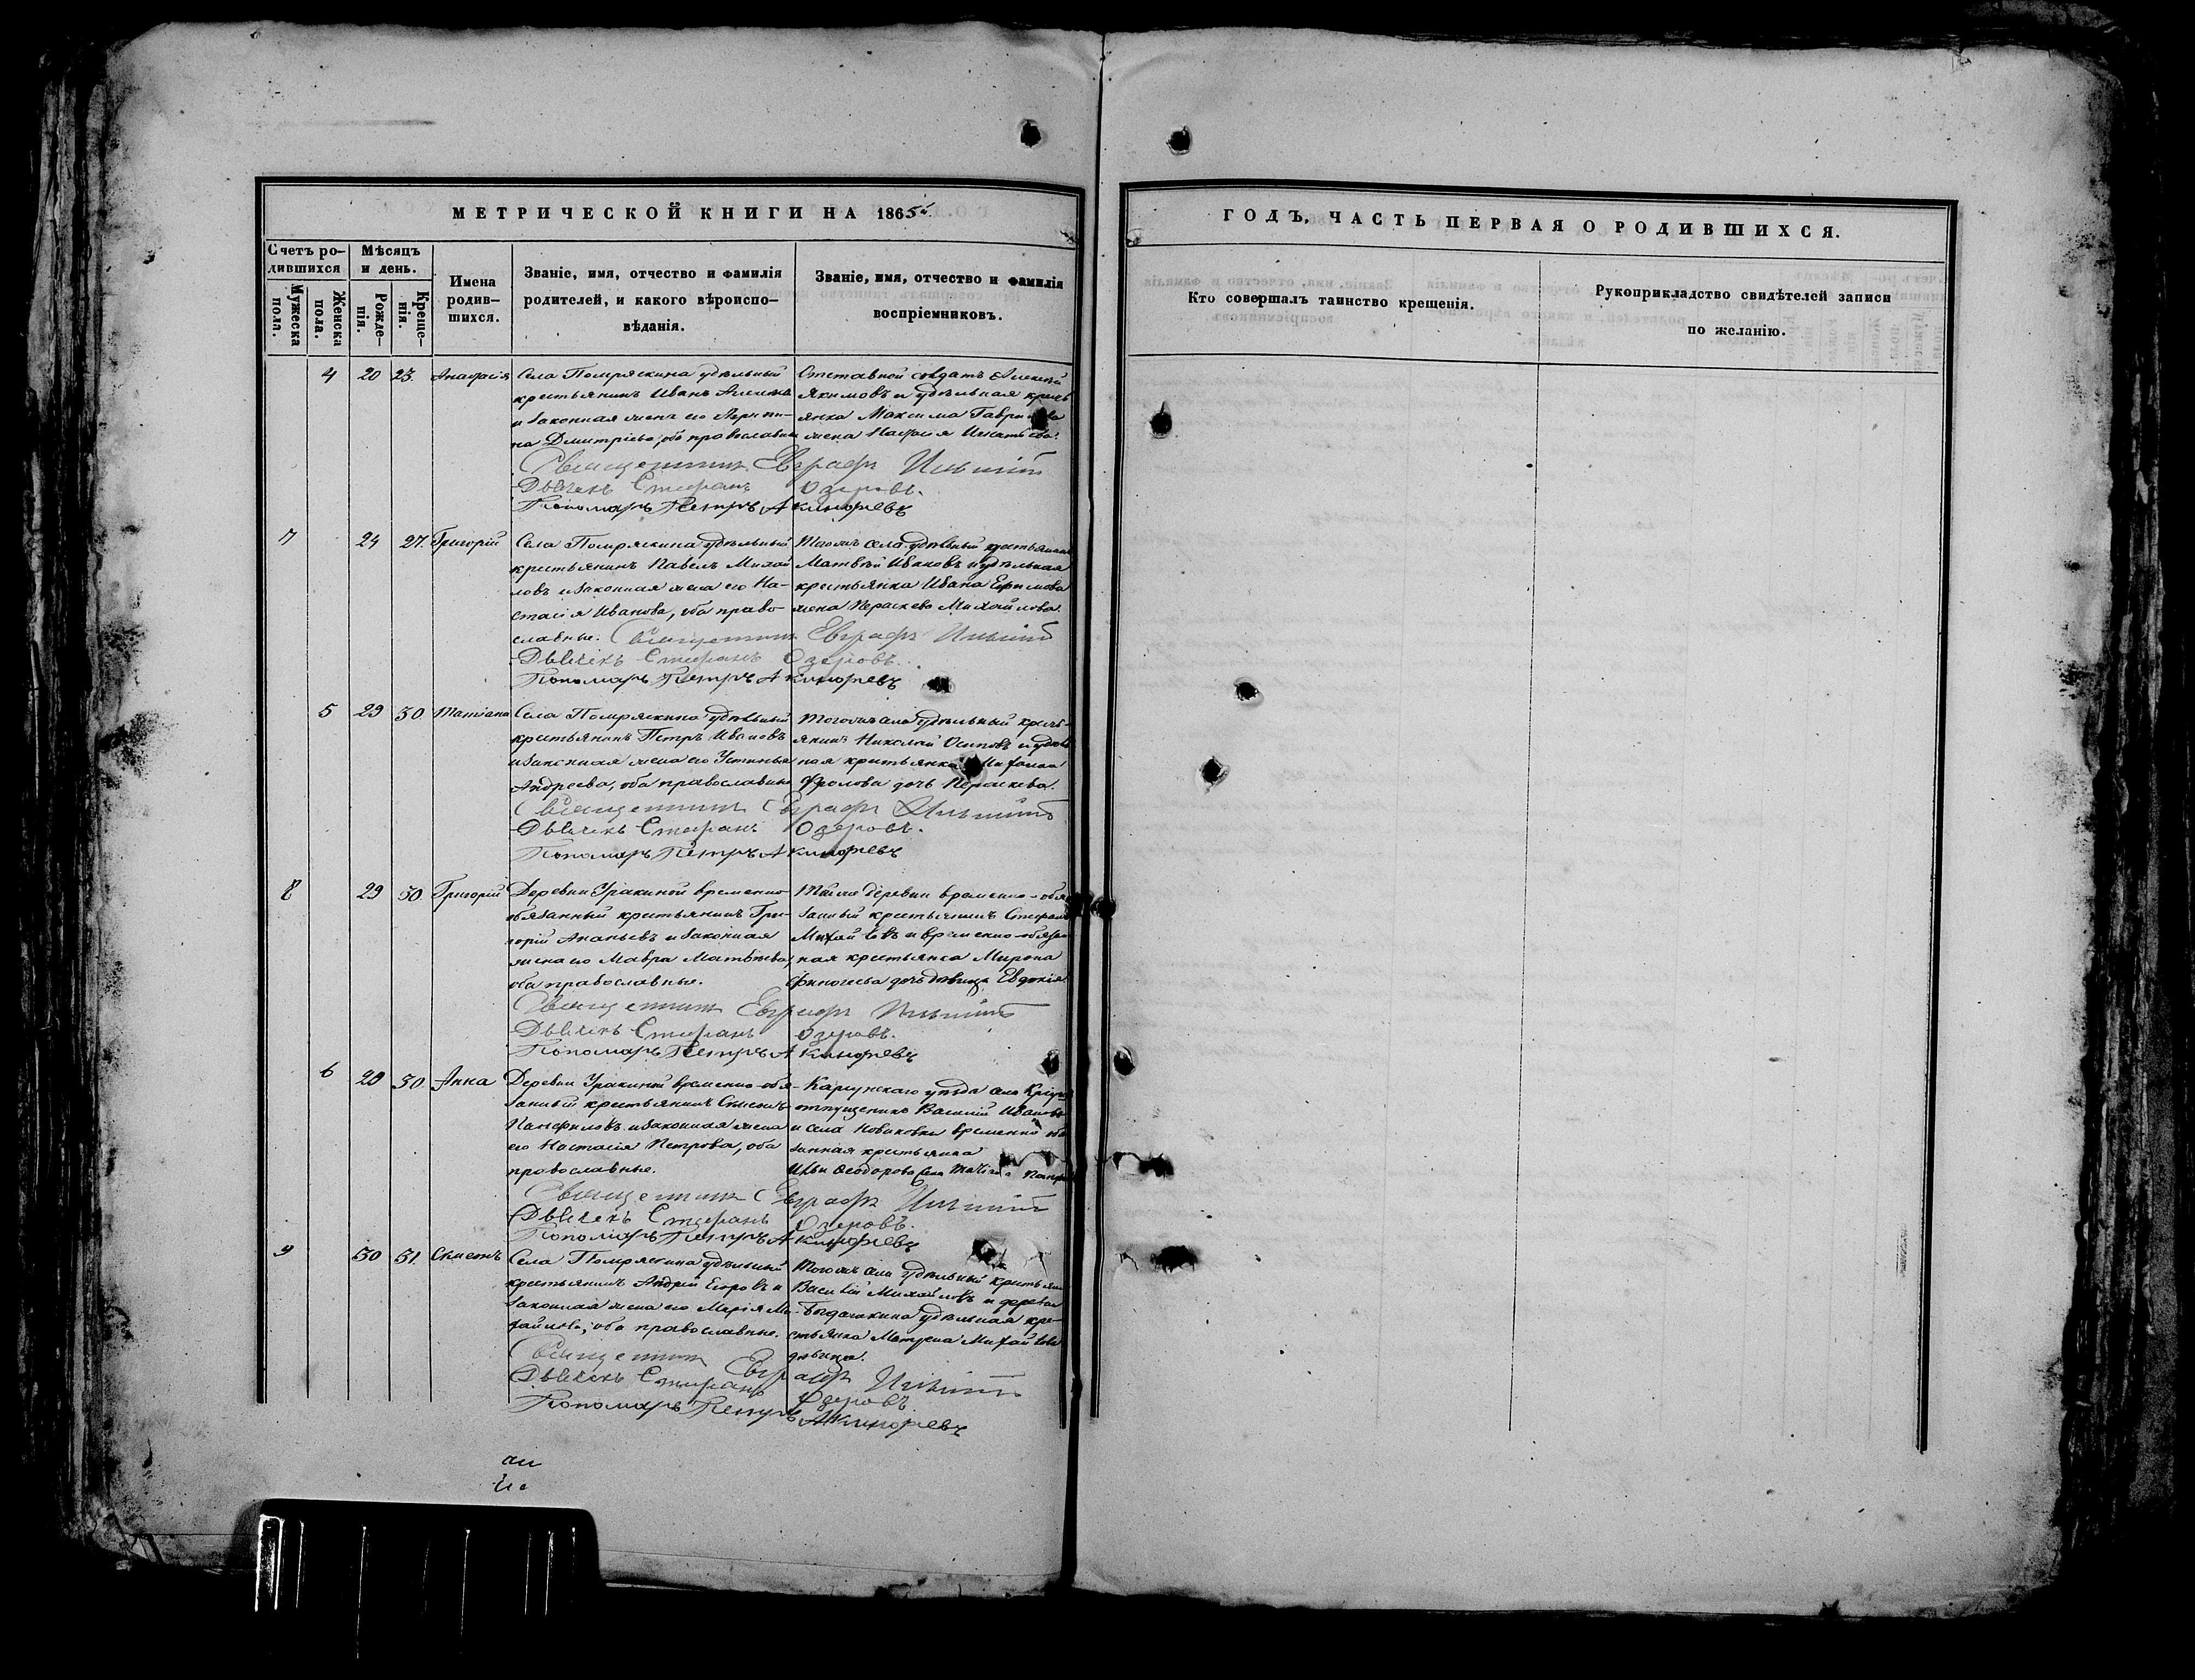 МЕТРИЧЕСКОЙ КНИГИ НА 1865й
Счетъ ро-
дившихся
Мѣсяцъ
и день.
Мужеска
пола.
Женска
пола.
Рожде-
нія.
Креще-
нія.
Имена
родив-
шихся.
Званіе, имя, отчество и фамилія
родителей, и какого вѣроиспо-
вѣданія.
Званіе, имя, отчество и фамилія
воспріемниковъ.
4 20 23. Анастасія
Села Помряскина удѣльный
крестьянинъ Иванъ
и законная жена его Агрипи-
на Дмитріева, оба православны
Отставной солдатъ Алексѣй
Якимовъ и удѣльная кресть
янка Максима Гаврилова
жена Настасія Игнатьева.
Священникъ Евграфъ
Дьячекъ Стефанъ Озеровъ.
Пономарь Петръ Акинфіевъ
7 24 27. Григорій
Села Помряскина удѣльный
крестьянинъ Павелъ Михай
ловъ и законная жена его На-
стасія Иванова, оба право-
славные.
Тогожъ села удѣльный крестьянинъ
Матвѣй Ивановъ и удѣльная
крестьянка Ивана Ефимова
жена Параскева Михайлова.
Священникъ Евграфъ
Дьячекъ Стефанъ Озеровъ.
Пономарь Петръ Акинфіевъ
5 29 30 Татіана
Села Помряскина удѣльный
крестьянинъ Петръ Ивановъ
и законная жена его Устинья
Андреева, оба православные
Тогожъ села удѣльный кресть-
янинъ Николай Осиповъ и удѣль
ная крестьянка Михаила
Фролова дочь Параскева.
Священникъ Евграфъ
Дьячекъ Стефанъ Озеровъ.
Пономарь Петръ Акинфіевъ
8 29 30 Григорій
Деревни Уракиной временно
обязанный крестьянинъ Гри-
горій Ананьевъ и законная
жена его Мавра Матвѣева,
оба православные.
Тойже деревни временно-обя
занный крестьянинъ Стефанъ
Михайловъ и временно-обязан
ная крестьянка Мирона
Финогеева дочь дѣвица Евдокія
Священникъ Евграфъ
Дьячекъ Стефанъ Озеровъ.
Пономарь Петръ Акинфіевъ
6 29 30 Анна
Деревни Уракиной временно-обя-
занный крестьянинъ Симеонъ
Панфиловъ и законная жена
его Настасія Петрова, оба
православные.
Карсунскаго уѣзда села
отпущеникъ Василій Ивановъ
и села Новиковки временно обя
занная крестьянка
Ильи Ѳеодорова
Священникъ Евграфъ
Дьячекъ Стефанъ Озеровъ.
Пономарь Петръ Акинфіевъ
9 30 31.
Села Помряскина удѣльный
крестьянинъ Андрей Егоровъ и
законная жена его Марія Ми-
хайлова, оба православные.
Тогожъ села удѣльный крестьянин
Василій Михайловъ и деревни
Богдашкина удѣльная кре-
стьянка Матрена Михайлова
дѣвица.
Священникъ Евграфъ
Дьячекъ Стефанъ Озеровъ
Пономарь Петръ Акинфіевъ
ГОДЪ. ЧАСТЬ ПЕРВАЯ О РОДИВШИХСЯ.
Кто совершалъ таинство крещенія.
Рукоприкладство свидѣтелей записи
по желанію.